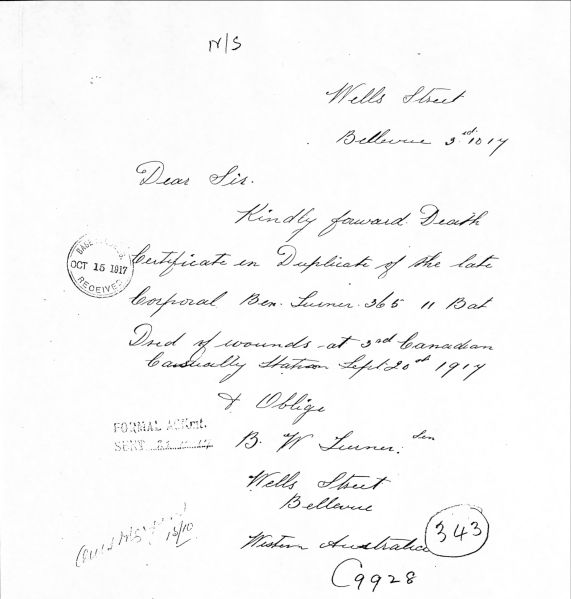 N/S
Wells Street
Bellevue 3rd 10 17
Dear Sir.
Kindly foward Death
Certificate in Duplicate of the late
Corporal Ben. Turner 365 11 Bat
Died of wounds at 3rd Canadian
Casually Station Sept 20th 1917
& Oblige
B. W Turner. Sen
Wells Street
Bellevue
Western Australia
BASE
OCT 15 1917
RECEIVED
FORMAL ACKmt.
SENT
15/10
343
C9928